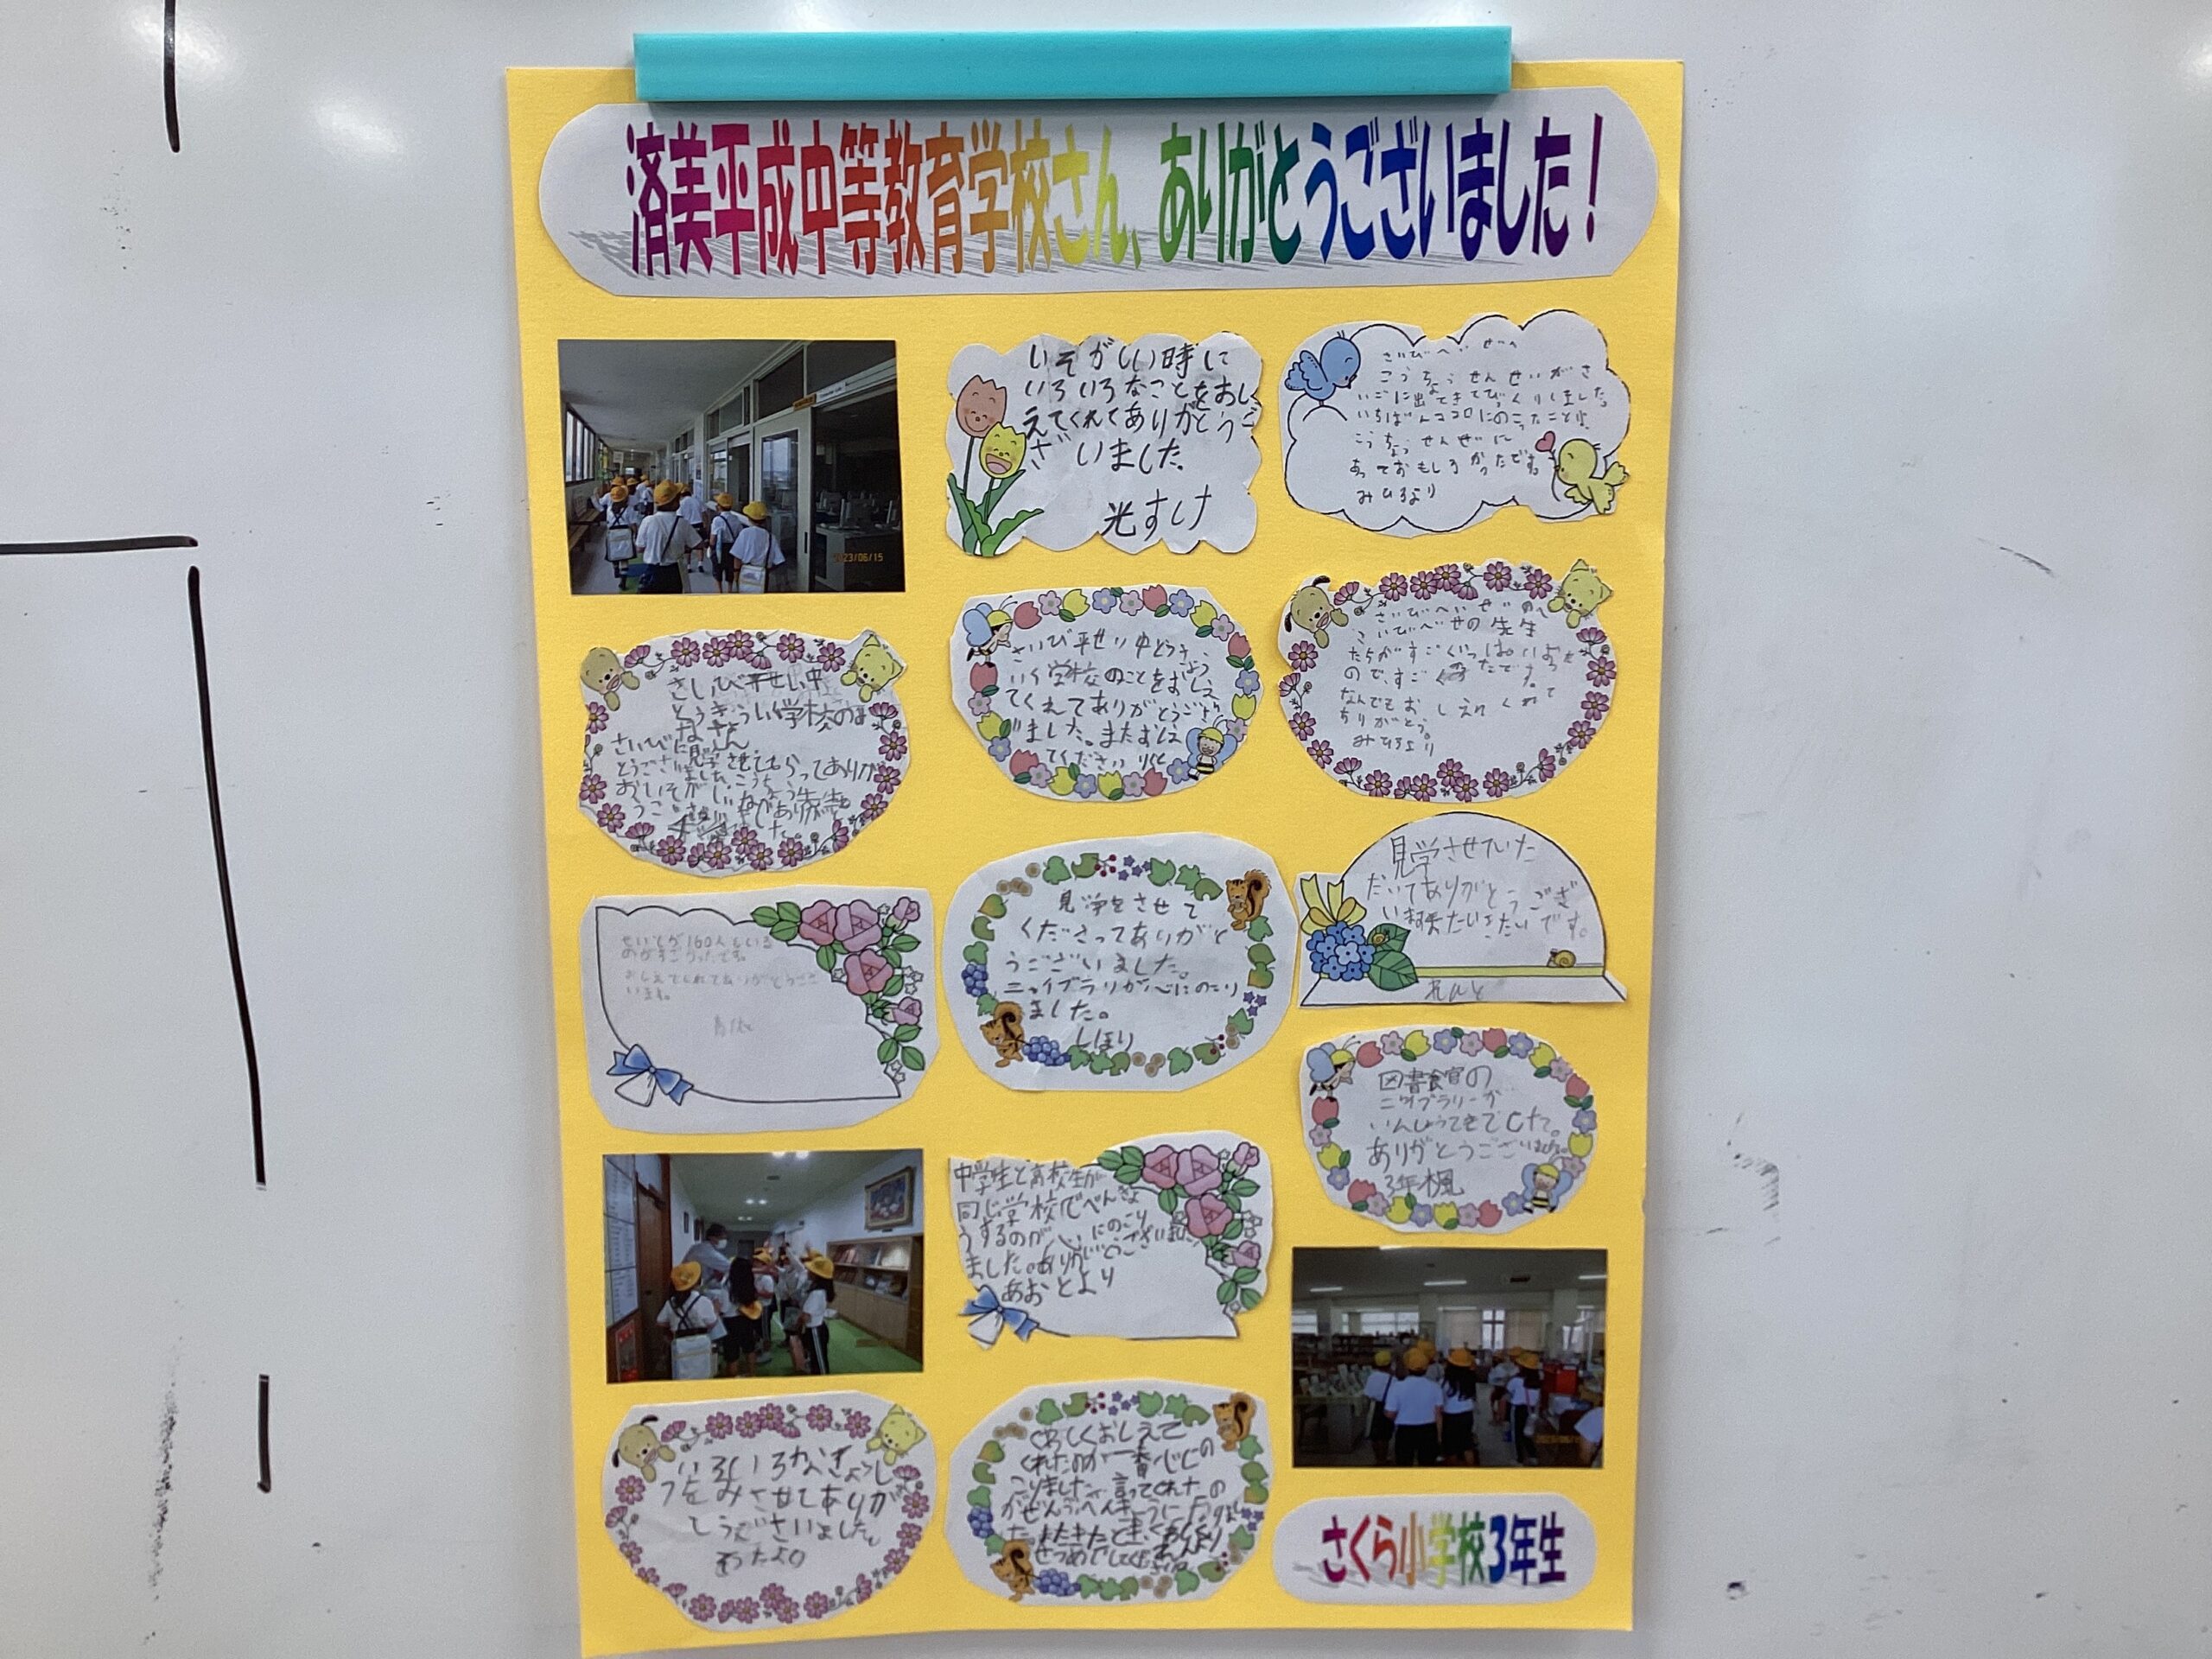 済美平成中等教育学校さん、ありがとうございました!
いそがしい時に
いろいろなことをおし
えてくれてありがとうご
ざいました
光すけ
さいびへいせい
こうちょうせんせいがさ
いごに出てきてびっくりしました
いちばんココロにのこったことは
こうちょうせんせいに
あっておもしろかったです。
みひろより
23/06/15
さいび平せい中
とうきょういく学校のみ
なさん
さいびに見学させてもらってありが
さいび平せい中とうきょう
いく学校のことをおしえ
てくれてありがとうござ
いました。またおしえ
てください
たちがすごくいっぱい
のですごく
なんでもおしえてくれて
ありがとう。
みひろより
せいとが160人もいる
のがすごかったです。
おしえてくれてありがとうござ
います。
見学をさせて
くださってありがと
うございました。
ニャイブラリが心にのこり
ました。
しほり
見学させていた
だいてありがとうござ
いました
れんと
図書館の
ニャイブラリーが
いんしょうてきでした。
ありがとうございました。
3年楓
中学生と高校生が
同じ学校でべんきょ
うするのが心にのこり
ました。ありがとうございました
あおとより
いろいろなきょうし
つをみさせてありが
とうございました
そうたより
くわしくおしえて
くれたのが一番心にの
こりました。言ってくれたの
がぜんぶべんきょうになりまし
た。またきたときくわしく
せつめいしてください
さくら小学校3年生